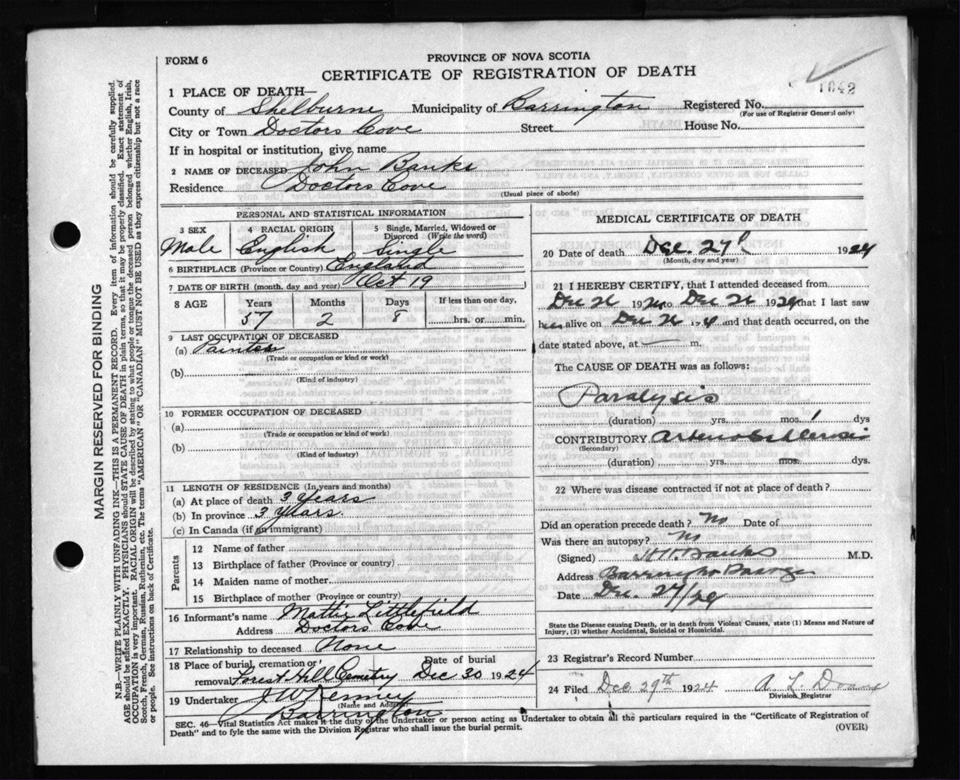 FORM 6
PROVINCE OF NOVA SCOTIA
CERTIFICATE OF REGISTRATION OF DEATH
1042
1 PLACE OF DEATH—
County of Shelburne Municipality of Barrington Registered No.
(For use of Registrar General only)
City or Town Doctors Cove Street House No.
If in hospital or institution, give name
2 NAME OF DECEASED John Banks
Residence Doctors Cove
(Usual place of abode)
PERSONAL AND STATISTICAL INFORMATION
3 SEX 4 RACIAL ORIGIN 5 Single, Married, Widowed or Divorced (Write the word)
Male English Single
6 BIRTHPLACE (Province or Country) England
7 DATE OF BIRTH (month, day and year) Oct 19
8 AGE Years Months Days If less than one day,
57 2 8 hrs. or min.
9 LAST OCCUPATION OF DECEASED
(a) Painter
(Trade or occupation or kind of work)
(b)
(Kind of industry)
10 FORMER OCCUPATION OF DECEASED
(a)
(Trade or occupation or kind of work)
(b)
(Kind of industry)
11 LENGTH OF RESIDENCE (In years and months)
(a) At place of death 3 years
(b) In province 3 years.
(c) In Canada (if an immigrant)
Parents
12 Name of father
13 Birthplace of father (Province or country)
14 Maiden name of mother
15 Birthplace of mother (Province or country)
16 Informant's name Mattie Littlefield
Address Doctors Cove
17 Relationship to deceased None
18 Place of burial, cremation or removal Forest Hill Cemetry Date of burial Dec 30 1924
19 Undertaker J W Kenney
(Name and Address)
Barrington
MEDICAL CERTIFICATE OF DEATH
20 Date of death Dec. 27 1924
(Month, day and year)
21 I HEREBY CERTIFY, that I attended deceased from
Dec 26 192 to Dec 26 1924 that I last saw
him alive on Dec 26 and that death occurred, on the
date stated above, at m.
The CAUSE OF DEATH was as follows:
Paralysis
(duration) yrs. mos. 1 dys
CONTRIBUTORY
(Secondary)
(duration) yrs. mos. dys.
22 Where was disease contracted if not at place of death?
Did an operation precede death? No Date of
Was there an autopsy? No
(Signed) Banks M.D.
Address Barrington Passage
Date Dec. 29/24
State the Disease causing Death, or in death from Violent Causes, state (1) Means and Nature of
Injury, (2) whether Accidental, Suicidal or Homicidal.
23 Registrar's Record Number
24 Filed Dec 29th 1924 A L
Division Registrar
SEC. 46—Vital Statistics Act makes it the duty of the Undertaker or person acting as Undertaker to obtain all the particulars required in the "Certificate of Registration of
Death" and to fyle the same with the Division Registrar who shall issue the burial permit.
(OVER)
MARGIN RESERVED FOR BINDING
N.B.—WRITE PLAINLY WITH UNFADING INK—THIS IS A PERMANENT RECORD. Every item of information should be carefully supplied.
AGE should be stated EXACTLY. PHYSICIANS should STATE CAUSE OF DEATH in plain terms, so that it may be properly classified. Exact statement of
OCCUPATION is very important. RACIAL ORIGIN will be described by stating to what people or tongue the deceased person belonged whether English, Irish,
Scotch, French, German, Russian, Ruthenian, etc. The terms "AMERICAN" OR "CANADIAN" MUST NOT BE USED as they express citizenship but not a race
or people. See instructions on back of Certificate.